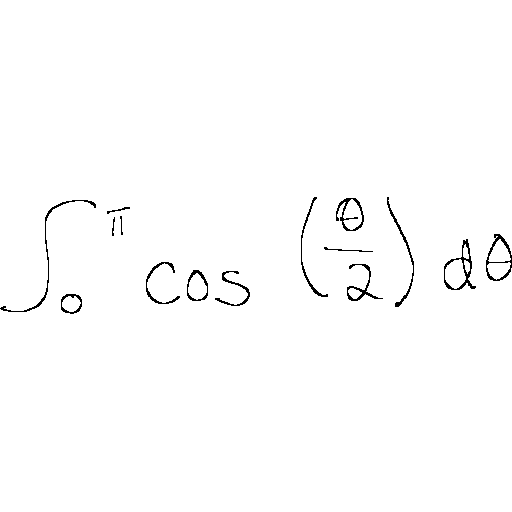 ∫₀^π cos (θ/2) dθ